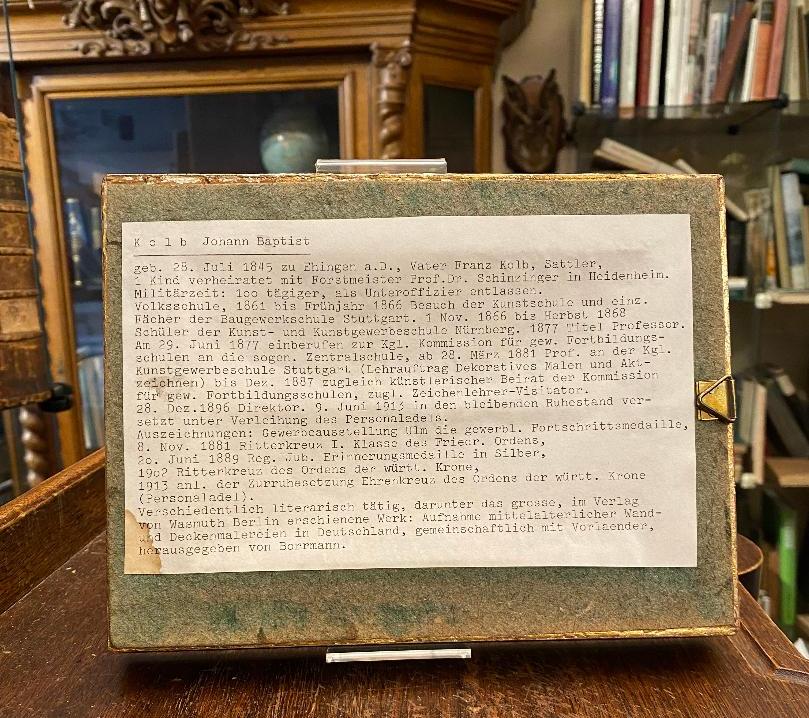 K o l b  Johann Baptist
geb. 28. Juli 1845 zu Ehingen a.D., Vater Franz Kolb, Sattler,
1 Kind verheiratet mit Forstmeister Prof.Dr. Schinzinger in Heidenheim.
Militärzeit: 1oo tägiger, als Unteroffizier entlassen.
Volksschule, 1861 bis Frühjahr 1866 Besuch der Kunstschule und einz.
Fächer der Baugewerkschule Stuttgart. 1 Nov. 1866 bis Herbst 1868
Schüler der Kunst- und Kunstgewerbeschule Nürnberg. 1877 Titel Professor.
Am 29. Juni 1877 einberufen zur Kgl. Kommission für gew. Fortbildungs-
schulen an die sogen. Zentralschule, ab 28. März 1881 Prof. an der Kgl.
Kunstgewerbeschule Stuttgart (Lehrauftrag Dekoratives Malen und Akt-
zeichnen) bis Dez. 1887 zugleich künstlerischer Beirat der Kommission
für gew. Fortbildungsschulen, zugl. Zeichenlehrer-Visitator.
28. Dez.1896 Direktor. 9. Juni 1913 in den bleibenden Ruhestand ver-
setzt unter Verleihung des Personaladels.
Auszeichnungen: Gewerbeausstellung Ulm die gewerbl. Fortschrittsmedaille,
8. Nov. 1881 Ritterkreuz I. Klasse des Friedr. Ordens,
2o. Juni 1889 Reg. Jub. Erinnerungsmedaille in Silber,
19o2 Ritterkreuz des Ordens der württ. Krone,
1913 anl. der Zurruhesetzung Ehrenkreuz des Ordens der württ. Krone
(Personaladel).
Verschiedentlich literarisch tätig, darunter das grosse, im Verlag
von Wasmuth Berlin erschienene Werk: Aufnahme mittelalterlicher Wand-
und Deckenmalereien in Deutschland, gemeinschaftlich mit Vorlaender,
herausgegeben von Borrmann.